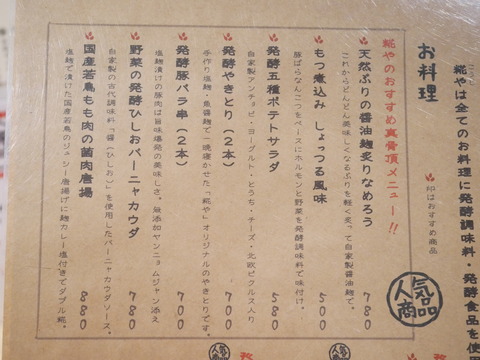 糀やは全てのお料理に発酵調味料・発酵食品を使用
お料理
印はおすすめ商品
糀やのおすすめ真骨頂メニュー!!
人気商品
天然ぶりの醤油麹炙りなめろう 780
これからどんどん美味しくなるぶりを軽く炙って自家製醤油麹で。
もつ煮込み しょっつる風味 500
豚ばらなんこつをベースにホルモンと野菜を発酵調味料で味付け。
発酵五種ポテトサラダ 580
自家製アンチョビ・ヨーグルト・とうち・チーズ・北欧ピクルス入り
発酵やきとり(2本) 700
手作り塩麹・魚醤麹で一晩寝かせた「糀や」オリジナルのやきとりです。
発酵豚バラ串(2本) 700
塩麹漬けの豚肉は旨味爆発の美味しさ。無添加ヤンニョムジャン添え
野菜の発酵ひしおバーニャカウダ 780
自家製の古代調味料「醤(ひしお)」を使用したバーニャカウダソース。
国産若鳥もも肉の菌肉唐揚 880
塩麹で漬けた国産若鳥のジューシー唐揚げに麹カレー塩付きでダブル糀。